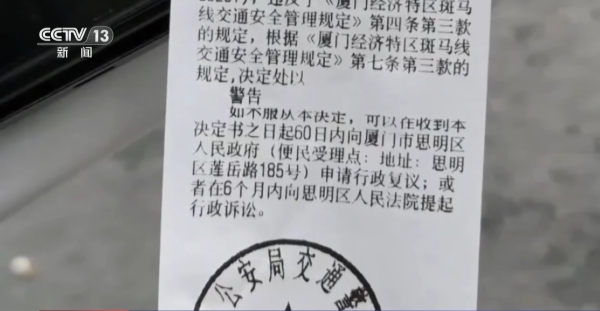 CCTV 13
新闻
《厦门经济特区斑马
线交通安全管理规定》第四条第三款
的规定,根据《厦门经济特区斑马线
交通安全管理规定》第七条第三款的
规定,决定处以
警告
如不服从本决定,可以在收到本
决定书之日起60日内向厦门市思明区
人民政府(便民受理点:地址:思明
区莲岳路185号)申请行政复议;或
者在6个月内向思明区人民法院提起
行政诉讼。
公安局交通警